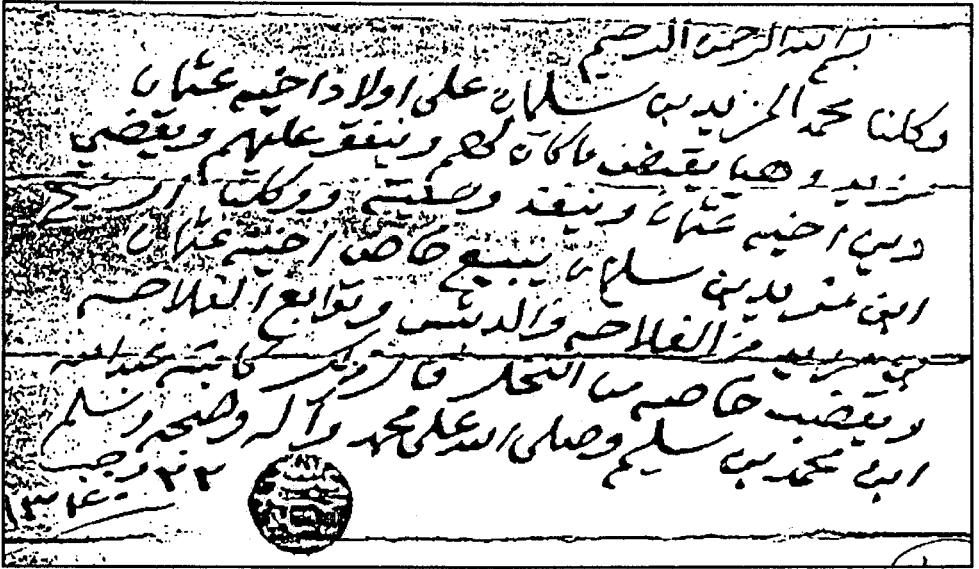 بسم الله الرحمن الرحيم
وكلنا محمد المزيد بن سلمان على اولاد اخيه عثمان
مزيد وصيا يقبض ماكان لهم وينفق عليهم ويقضي
دين اخيه عثمان وينفذ وصيته ووكلنا
ابن مزيد بن سلمان يبيع خاص اخيه عثمان
بن مزيد من الفلاحه والدبش وتوابع الفلاحه
ويقضب خاصه من النخل قال ذلك كاتبه عبدالله
ابن محمد بن سليم وصلى الله على محمد وآله وصحبه وسلم
٢٢ رجب
١٣٤٠